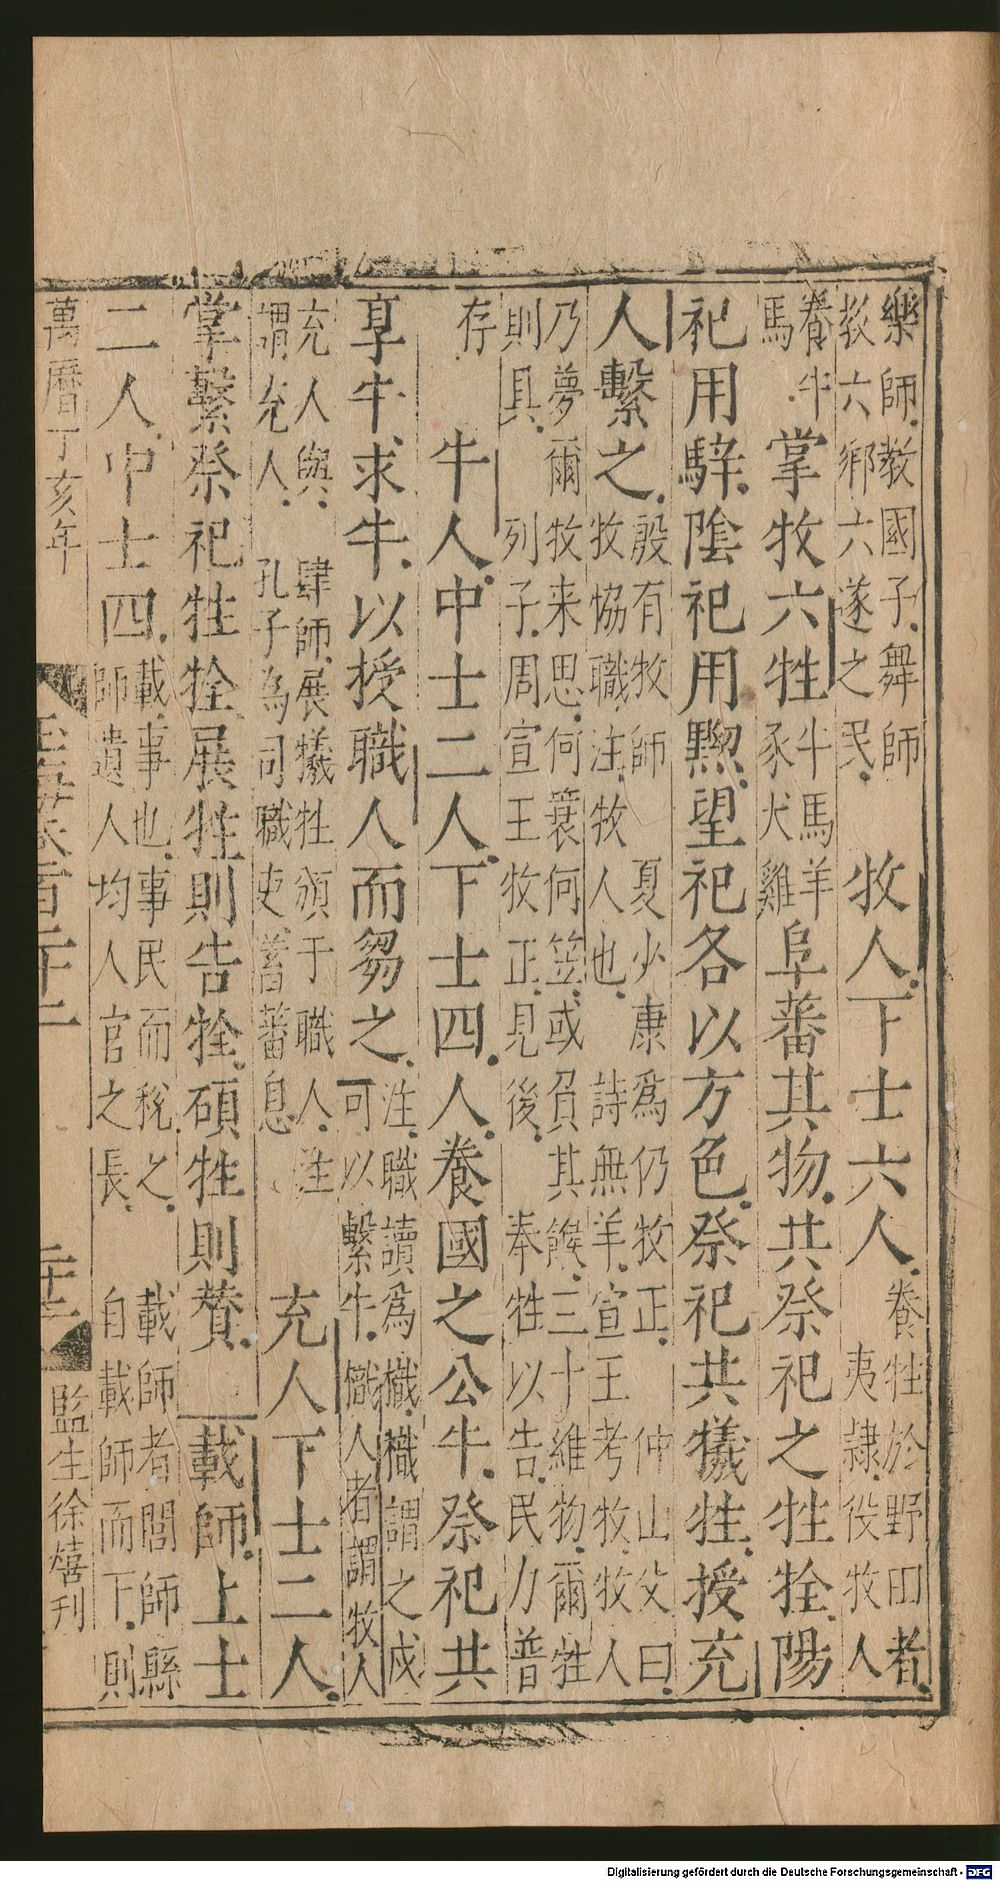 樂師教國子舞師
教六鄉六遂之民
牧人下士六人
養牲於野田者
夷隷役牧人
養牛
馬
掌牧六牲
牛馬羊
豕犬雞
阜蕃其物共祭祀之牲牷陽
祀用騂陰祀用黝望祀各以方色祭祀共犧牲授充
人繫之
殷有牧師
牧協職注牧人也
夏少康爲仍牧正
詩無羊宣王考牧牧人
仲山父曰
乃夢爾牧来思何蓑何笠或負其餱三十維物爾牲
則具
列子周宣王牧正見後
奉牲以告民力普
存
牛人中士二人下士四人養國之公牛祭祀共
享牛求牛以授職人而芻之
注職讀爲樴樴謂之杙
可以繫牛樴人者謂牧人
充人與
謂充人
肆師展犧牲頒于職人注
孔子為司職吏蓄蕃息
充人下士二人
掌繫祭祀牲牷展牲則告牷碩牲則贊
載師上士
二人中士四
載事也事民而稅之
師遺人均人官之長
載師者閭師縣
自載師而下則
萬曆丁亥年
玉海卷百二十二
二十二
監生徐熺刊
Digitalisierung gefördert durch die Deutsche Forschungsgemeinschaft - DFG